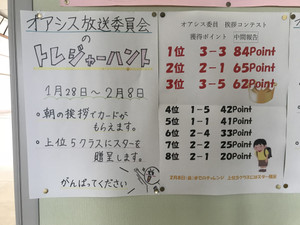 オアシス放送委員会
の
トレジャーハント
1月28日~2月8日
・朝の挨拶でカードが
もらえます。
・上位5クラスにスターを
贈呈します。
がんばってください
オアシス委員 挨拶コンテスト
獲得ポイント 中間報告
1位 3-3 84Point
2位 2-1 65Point
3位 3-5 62Point
4位 1-5 42Point
5位 1-1 41Point
6位 2-4 33Point
7位 2-5 25Point
8位 2-1 20Point